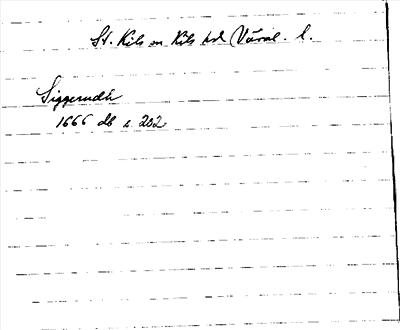 St. Kils sn Kils hd Värml. l.
Siggerudh
1666 db s 202